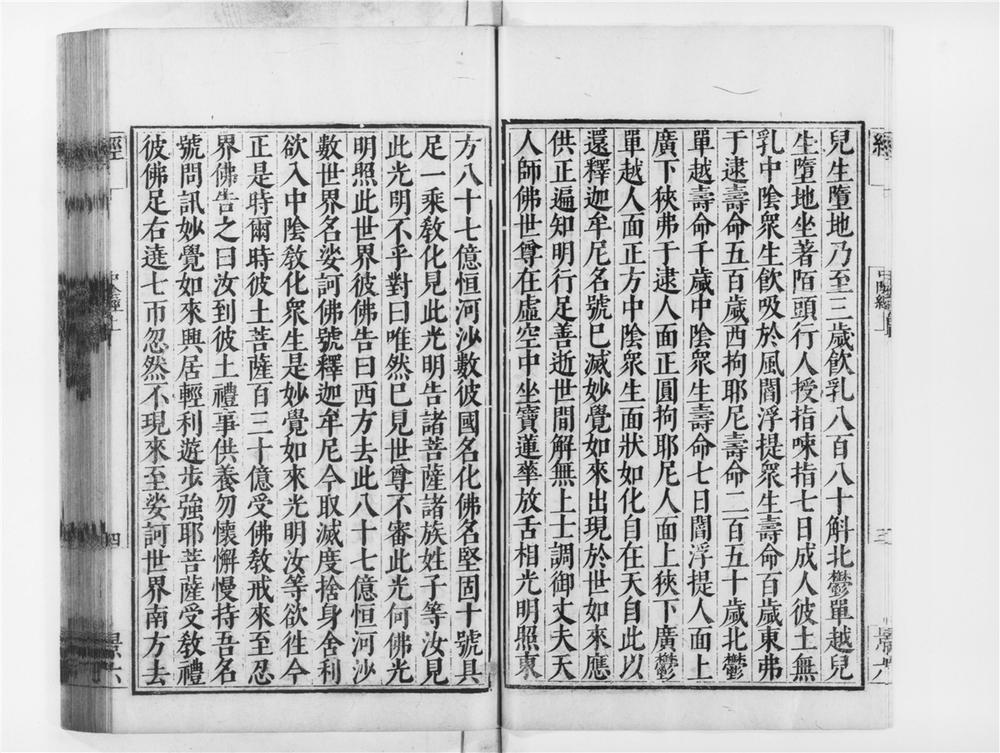 兒生墮地乃至三歲飲乳八百八十斛北鬱單越兒
生墮地坐著陌頭行人授指𠲿指七日成人彼土無
乳中陰衆生飲吸於風閻浮提衆生壽命百歲東弗
于逮壽命五百歲西拘耶尼壽命二百五十歲北鬱
單越壽命千歲中陰衆生壽命七日閻浮提人面上
廣下狹弗于逮人面正圓拘耶尼人面上狹下廣鬱
單越人面正方中陰衆生面狀如化自在天自此以
還釋迦牟尼名號已滅妙覺如來出現於世如來應
供正遍知明行足善逝世間解無上士調御丈夫天
人師佛世尊在虛空中坐寶蓮華放舌相光明照東
方八十七億恒河沙數彼國名化佛名堅固十號具
足一乘敎化見此光明告諸菩薩諸族姓子等汝見
此光明不乎對曰唯然已見世尊不審此光何佛光
明照此世界彼佛告曰西方去此八十七億恒河沙
數世界名娑訶佛號釋迦牟尼今取滅度捨身舍利
欲入中陰敎化衆生是妙覺如來光明汝等欲徃今
正是時爾時彼土菩薩百三十億受佛敎戒來至忍
界佛告之曰汝到彼土禮事供養勿懷懈慢持吾名
號問訊妙覺如來興居輕利遊步強耶菩薩受敎禮
彼佛足右遶七帀忽然不現來至娑訶世界南方去
經
四
景六